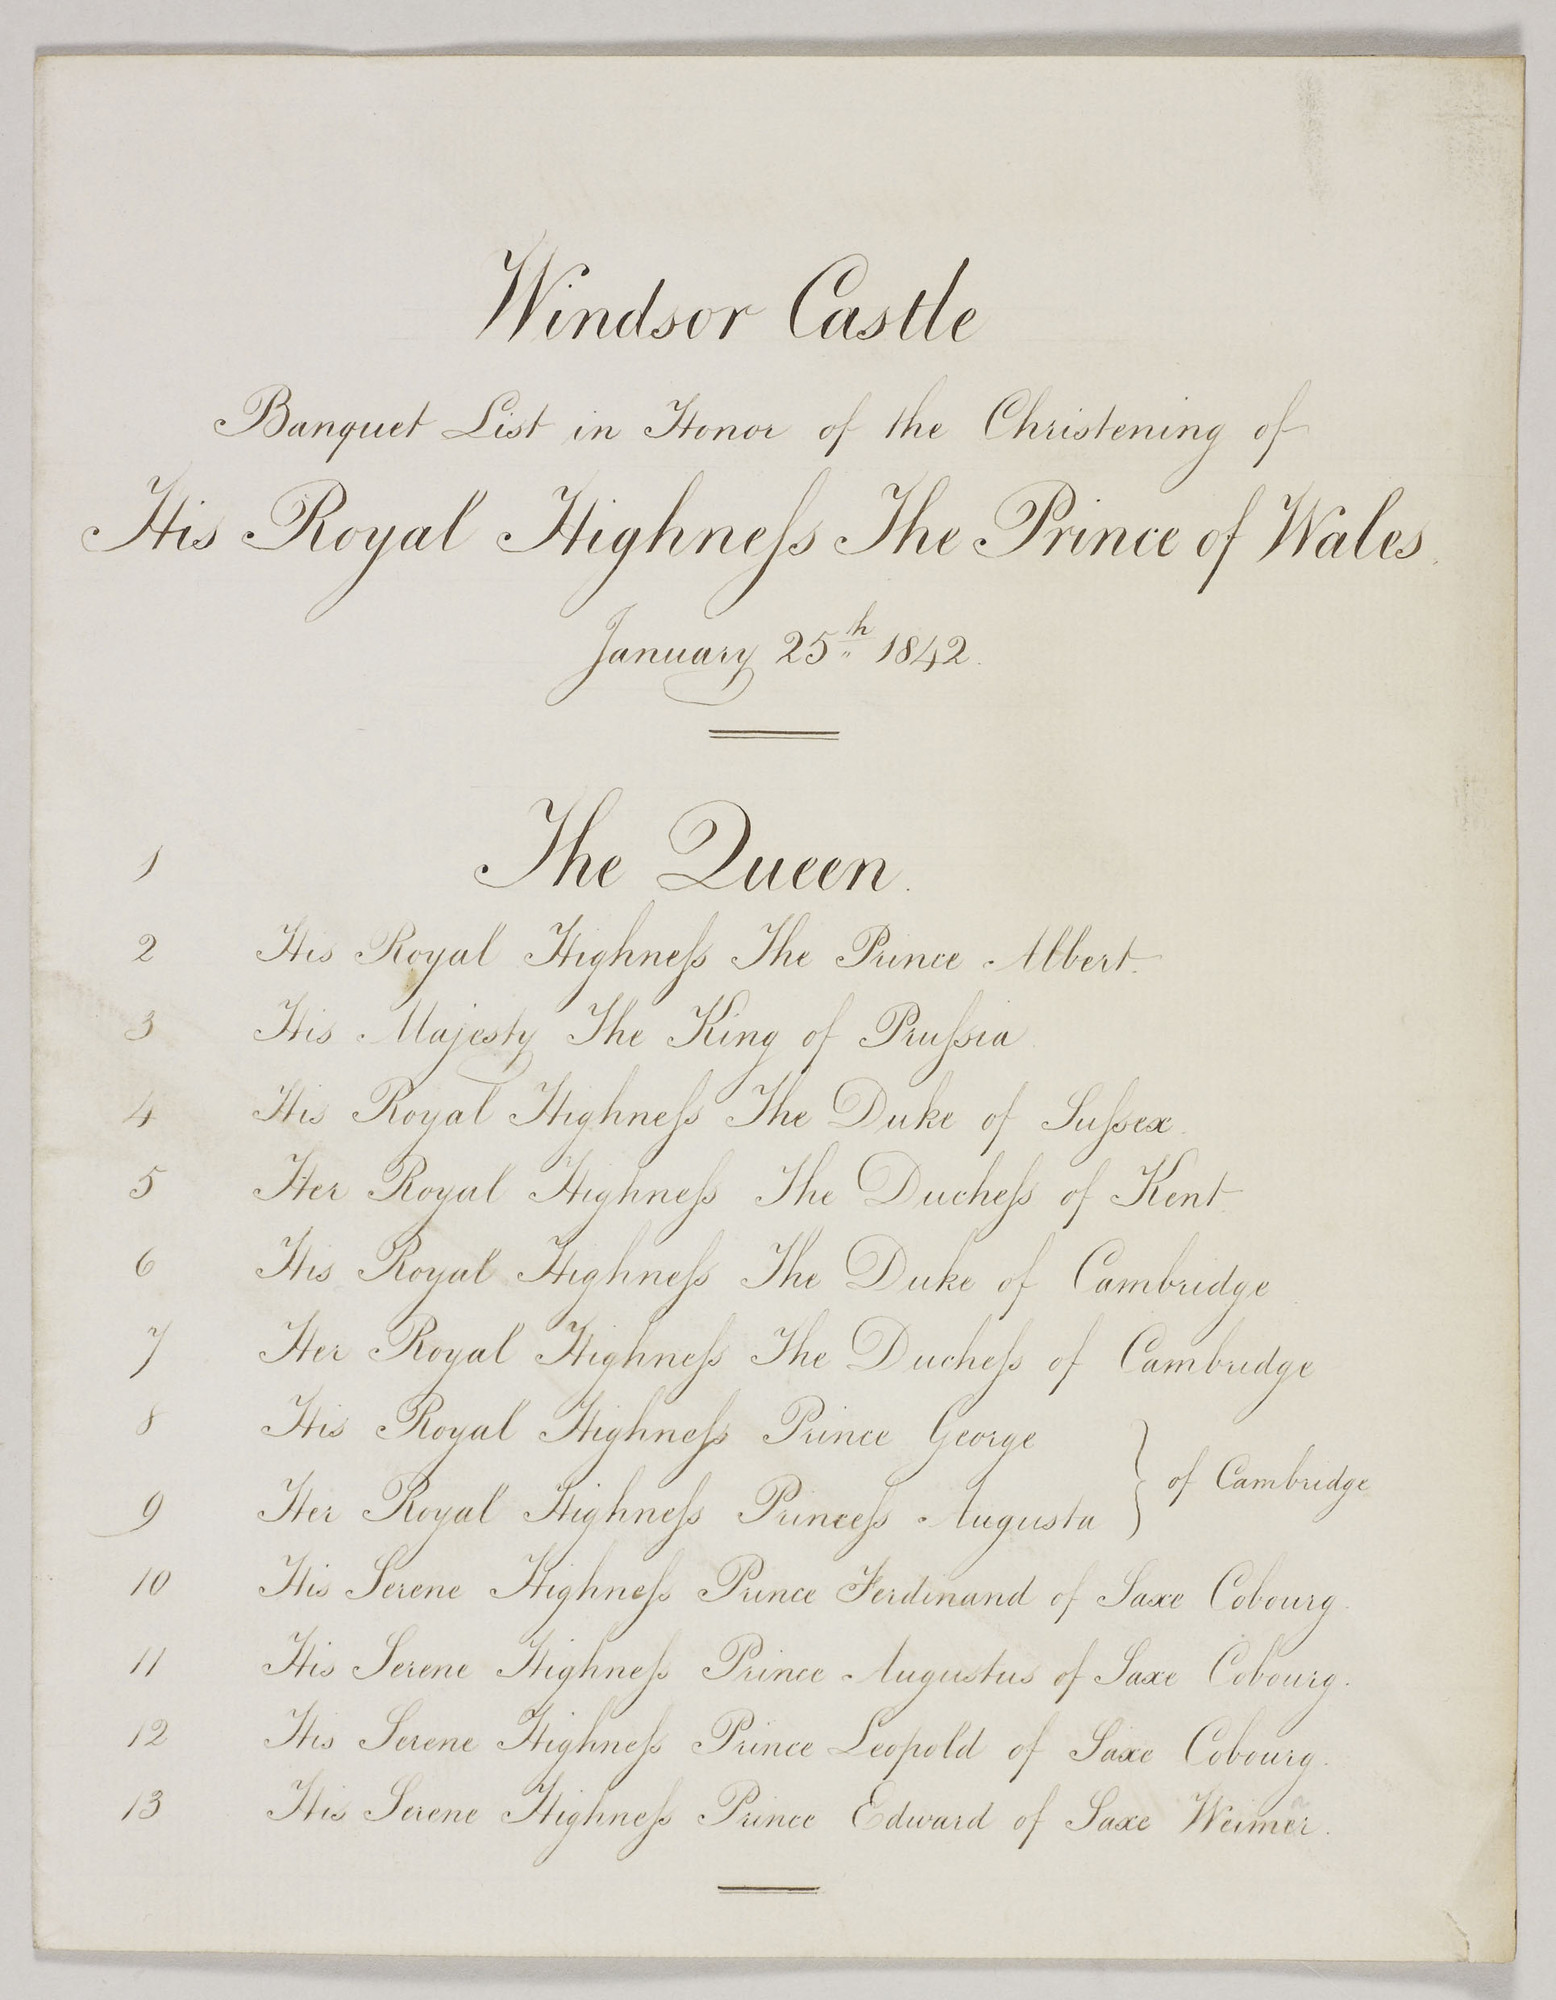 Windsor Castle
Banquet List in Honor of the Christening of
His Royal Highneſs The Prince of Wales.
January 25th 1842.
1 The Queen.
2 His Royal Highneſs The Prince Albert.
3 His Majesty The King of Pruſsia
4 His Royal Highneſs The Duke of Suſsex.
5 Her Royal Highneſs The Ducheſs of Kent
6 His Royal Highneſs The Duke of Cambridge
7 Her Royal Highneſs The Ducheſs of Cambridge
8 His Royal Highneſs Prince George
9 Her Royal Highneſs Princeſs Augusta
} of Cambridge
10 His Serene Highneſs Prince Ferdinand of Saxe Cobourg.
11 His Serene Highneſs Prince Augustus of Saxe Cobourg.
12 His Serene Highneſs Prince Leopold of Saxe Cobourg.
13 His Serene Highneſs Prince Edward of Saxe Weimer.